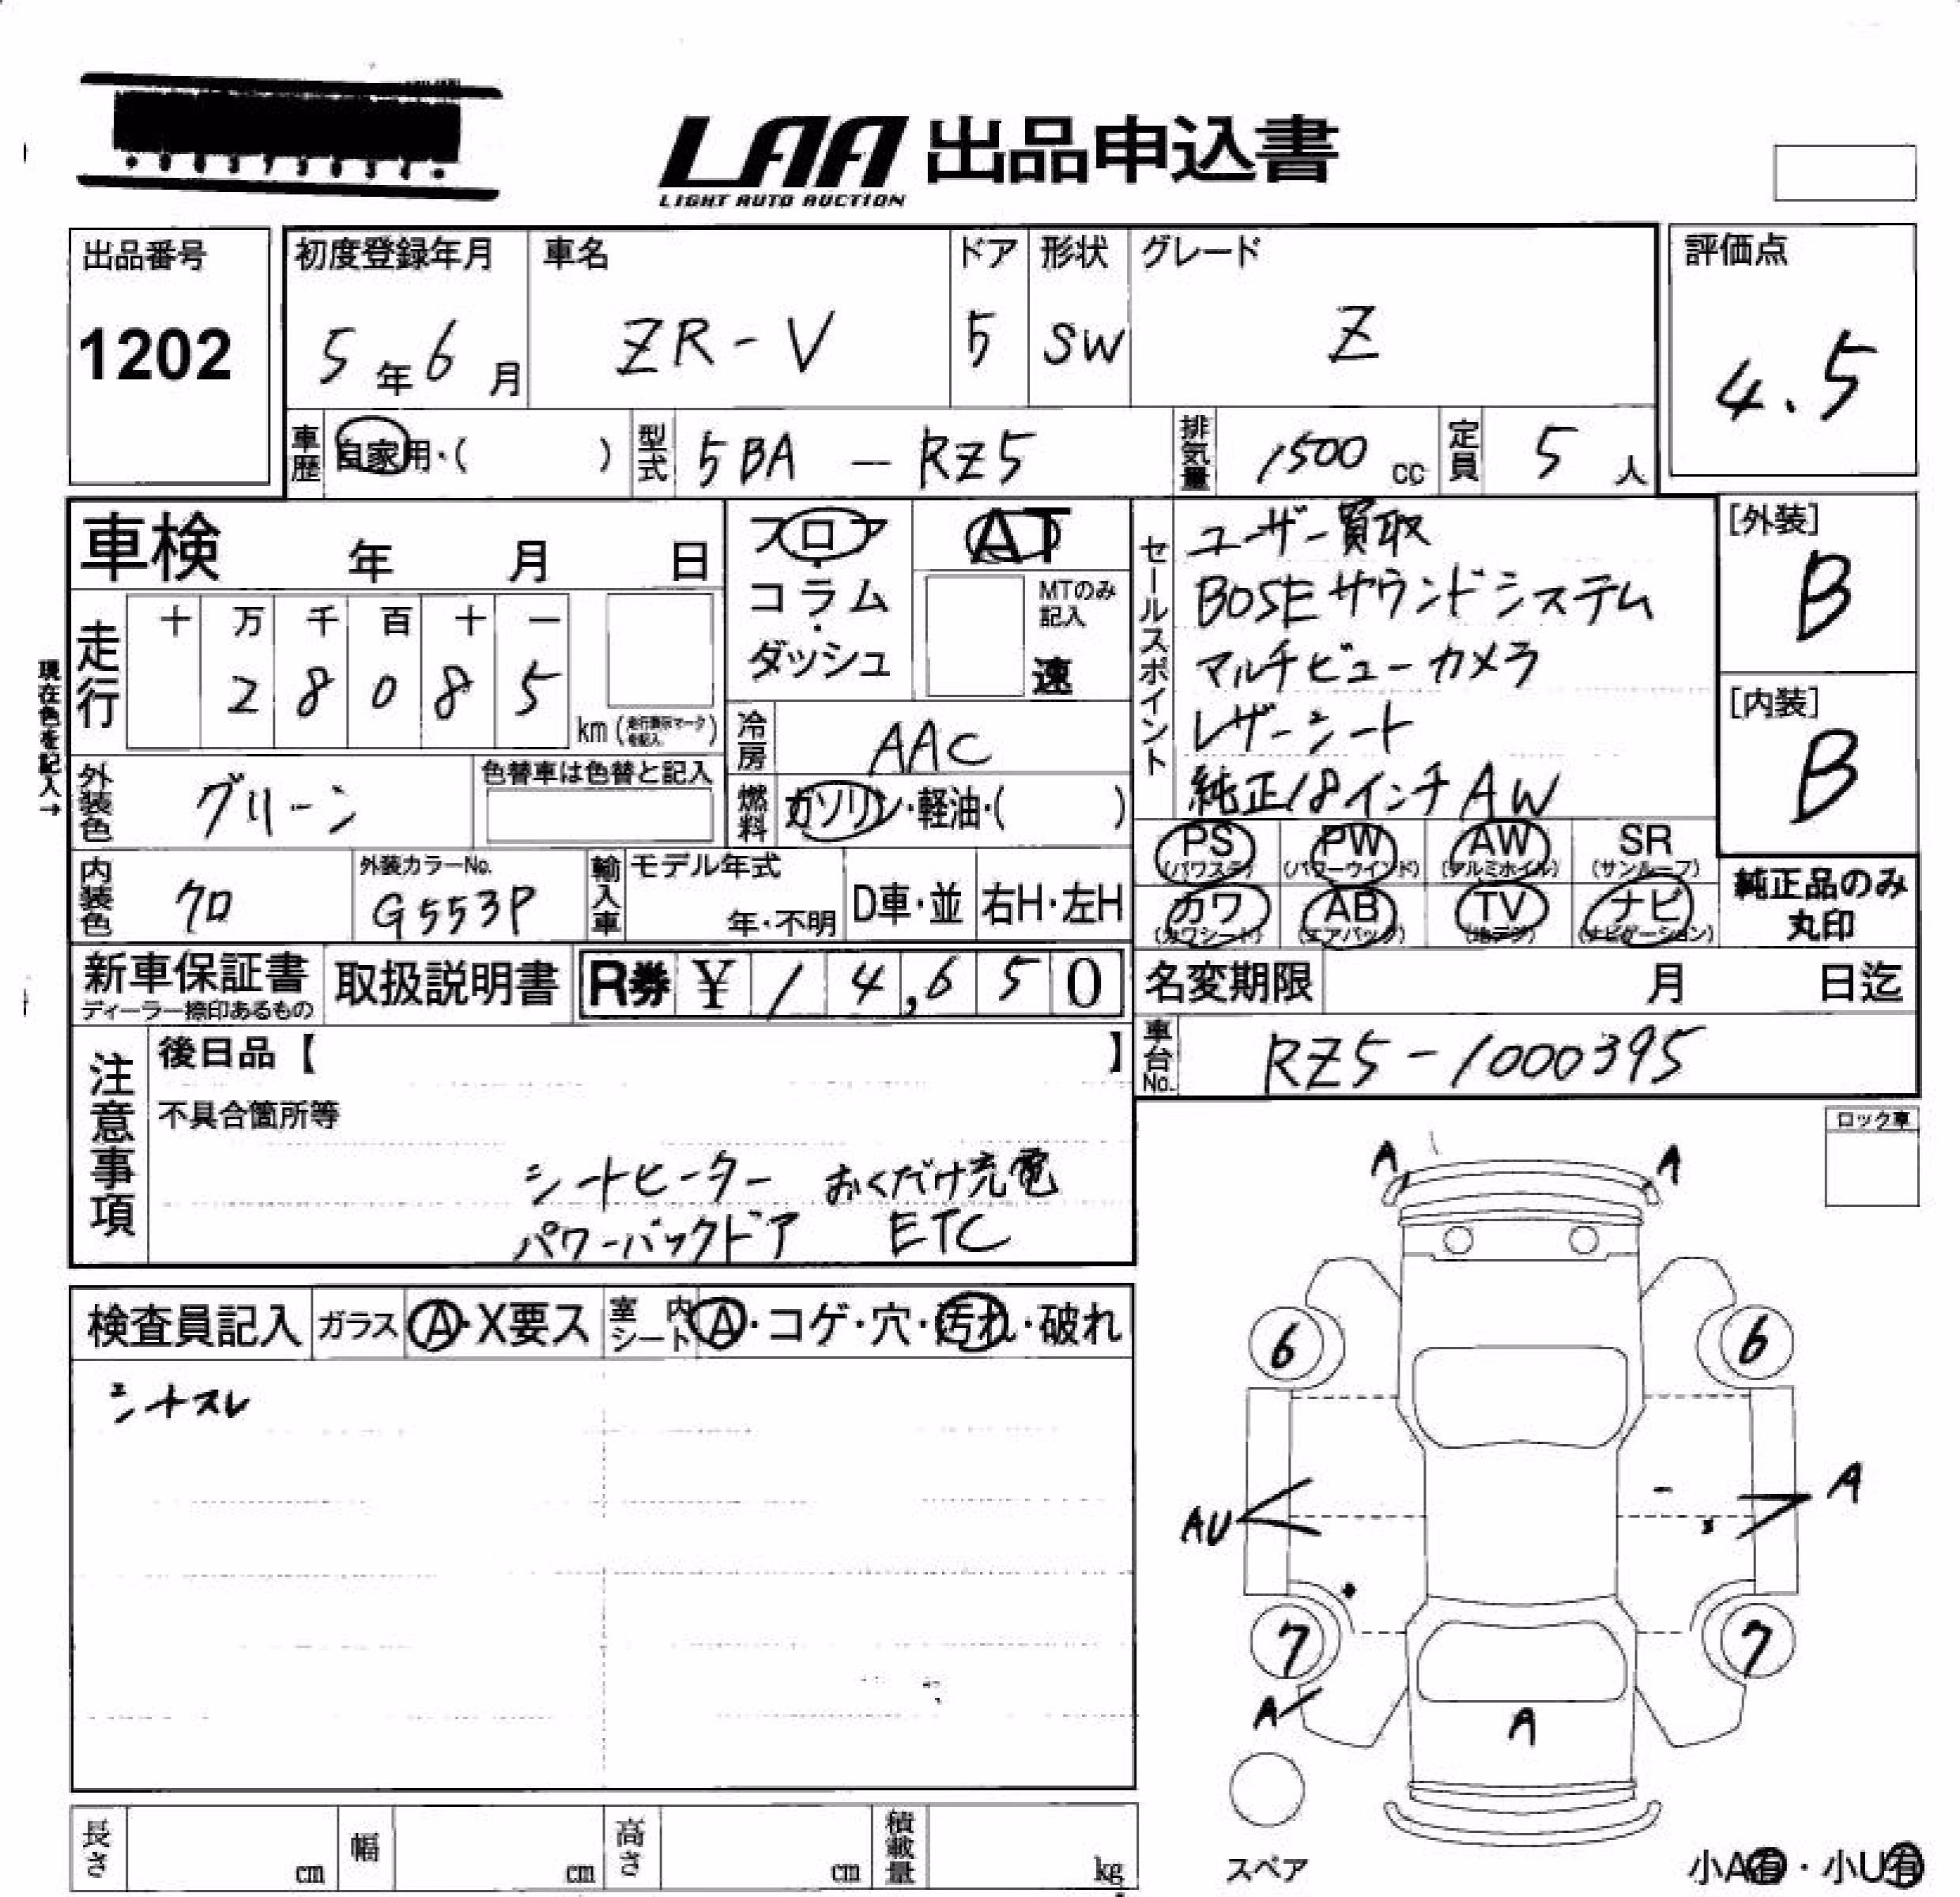 LAA 出品申込書
LIGHT AUTO AUCTION
出品番号
1202
初度登録年月 車名 ドア 形状 グレード
5年6月 ZR-V 5 SW Z
評価点
4.5
車歴 自家用・( ) 型式 5BA — RZ5 排気量 1500 cc 定員 5 人
車検 年 月 日
フロア・コラム・ダッシュ
AT
MTのみ記入
速
現在色を記入→
走行 十 万 千 百 十 一
2 8 0 8 5
km (走行表示マークを記入)
冷房 AAC
燃料 ガソリン・軽油・( )
外装色 グリーン
色替車は色替と記入
内装色 クロ
外装カラーNo.
G553P
輸入車 モデル年式
年・不明
D車・並 右H・左H
セールスポイント
ユーザー買取
BOSEサウンドシステム
マルチビューカメラ
レザーシート
純正18インチAW
[外装]
B
[内装]
B
PS PW AW SR
(パワステ) (パワーウインド) (アルミホイル) (サンルーフ)
カワ AB TV ナビ
(カワシート) (エアバッグ) (地デジ) (ナビゲーション)
純正品のみ丸印
新車保証書
ディーラー捺印あるもの
取扱説明書
R券 ¥ 1 4,6 5 0
名変期限 月 日迄
車台No. RZ5-1000395
注意事項
後日品【 】
不具合箇所等
シートヒーター おくだけ充電
パワーバックドア ETC
検査員記入 ガラス A・X要ス 室内シート A・コゲ・穴・汚れ・破れ
シートスレ
ロック車
A A
6 6
AU A
7 7
A A
スペア
小A有・小U有
長さ cm 幅 cm 高さ cm 積載量 kg